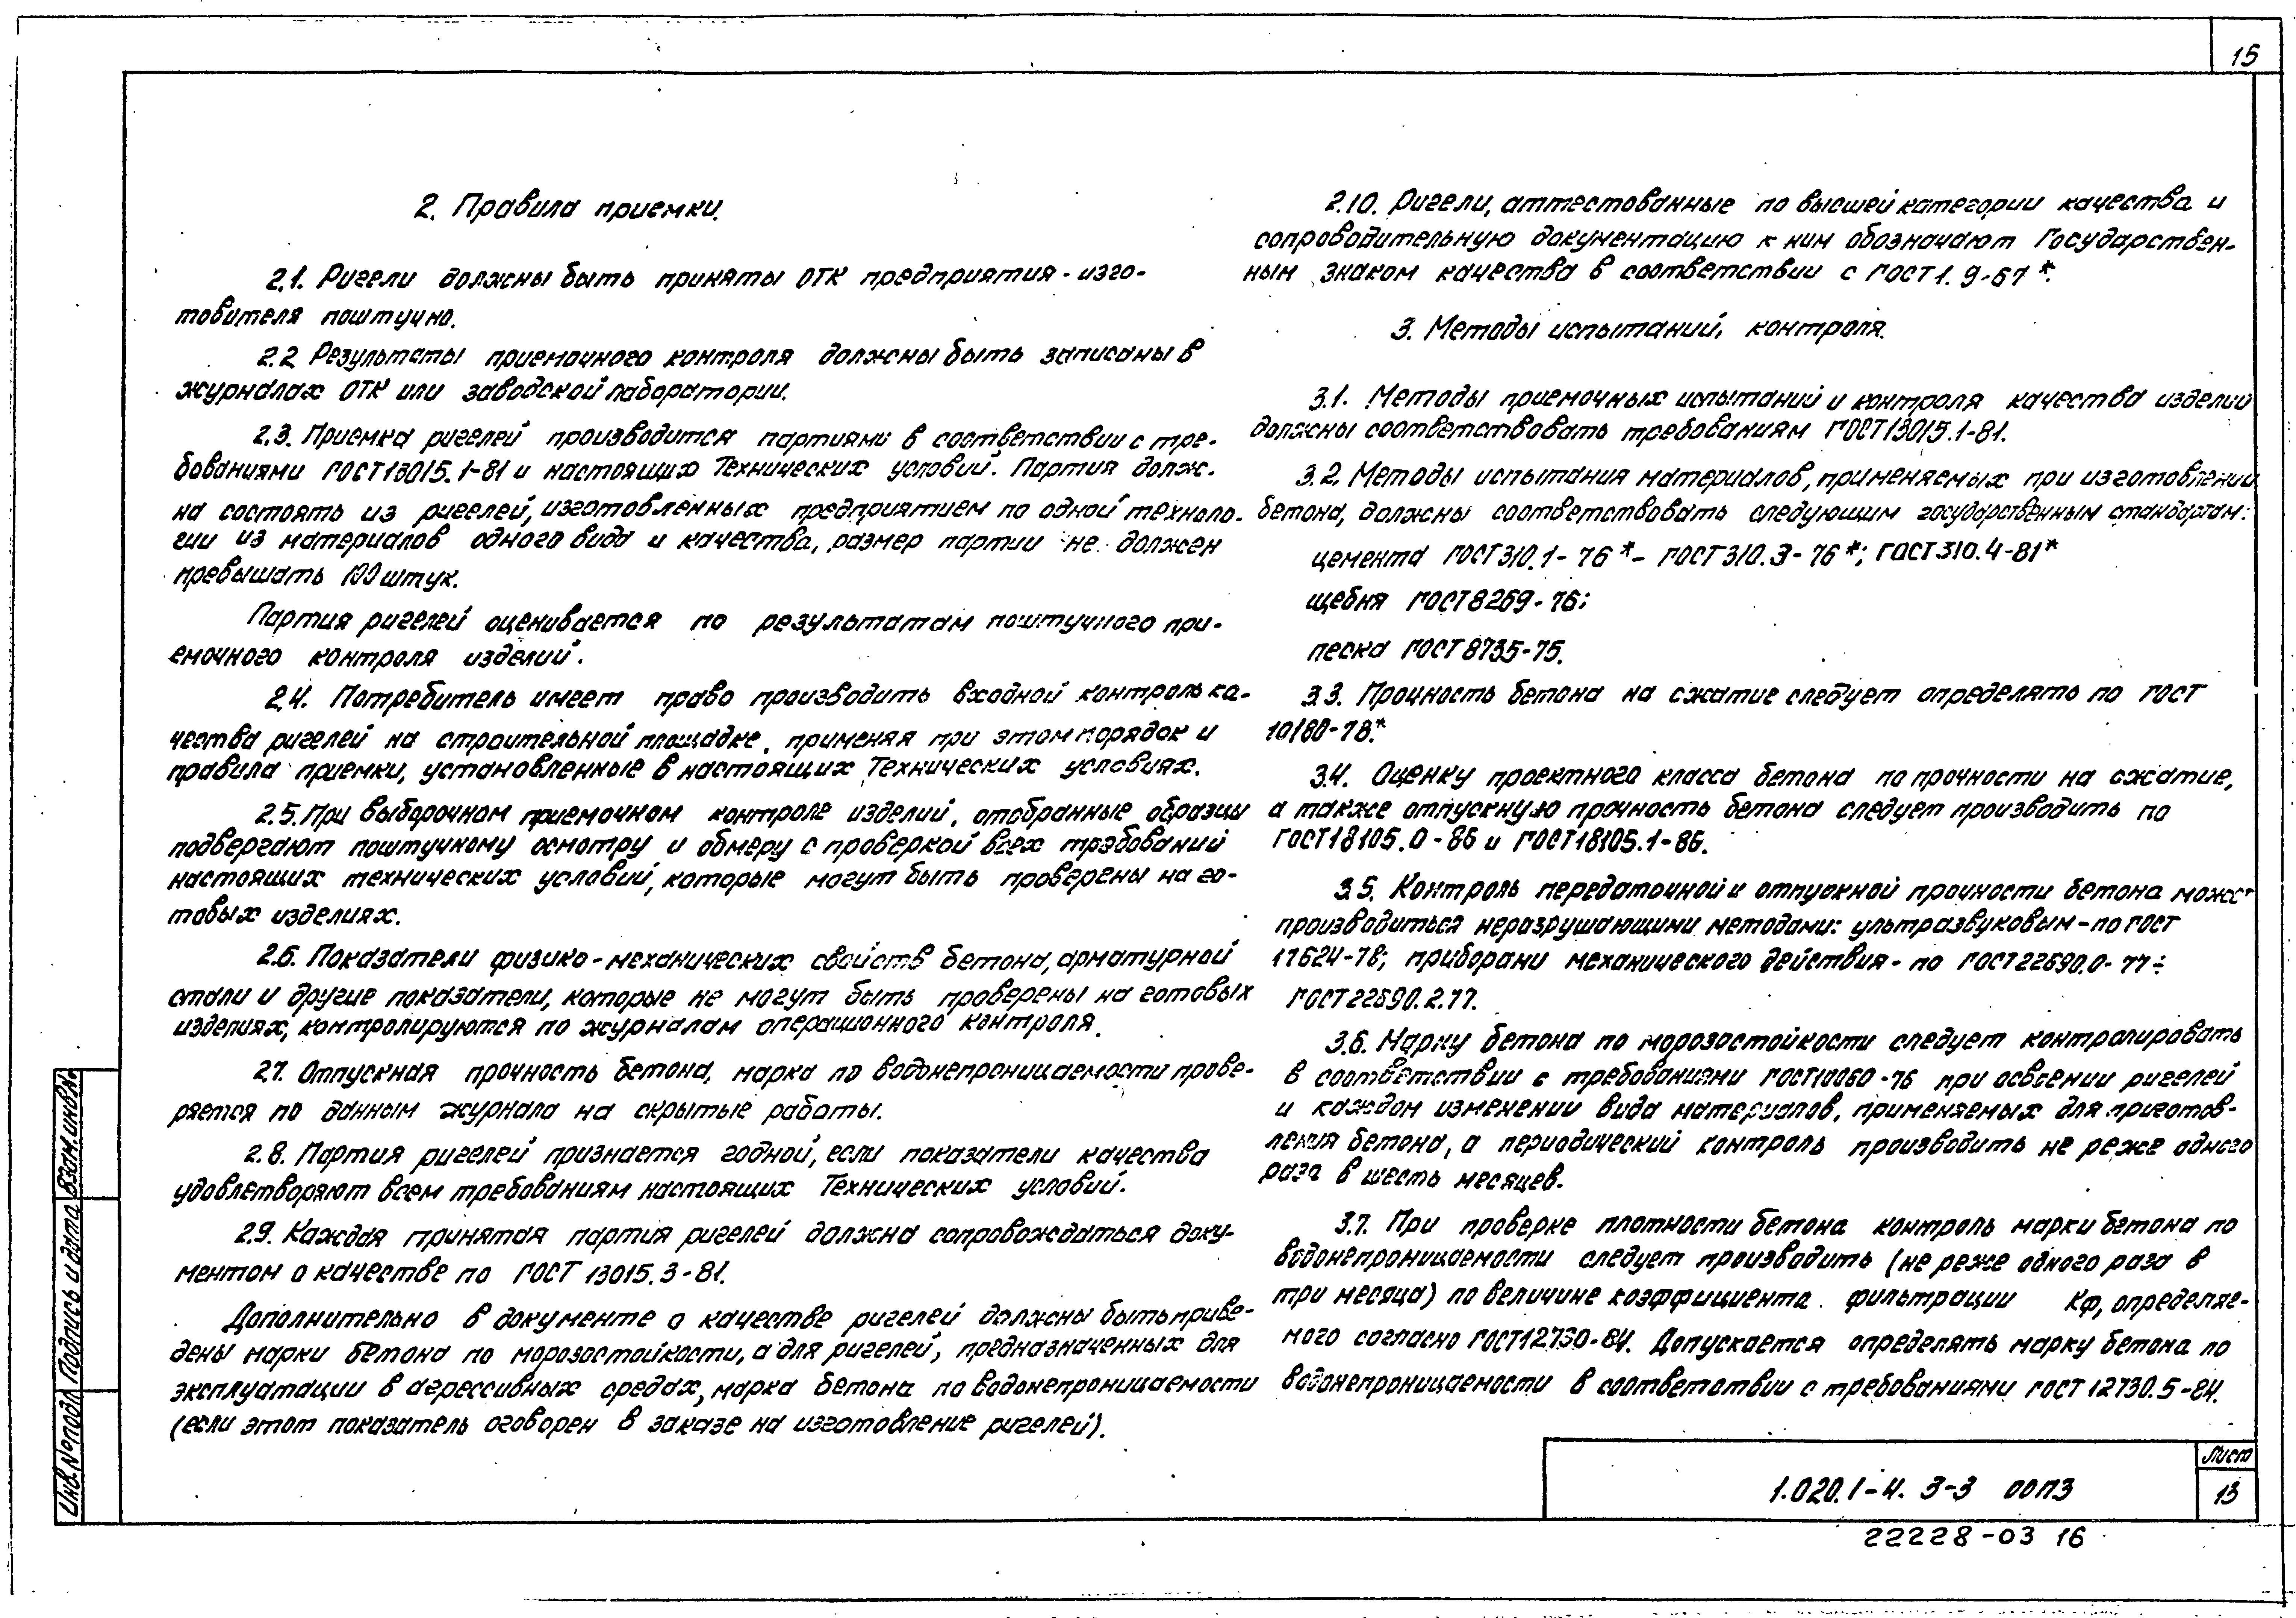 15
2. Правила приемки.
2.1. Ригели должны быть приняты ОТК предприятия - изго-
товителя поштучно.
2.2 Результаты приемочного контроля должны быть записаны в
журналах ОТК или заводской лаборатории.
2.3. Приемка ригелей производится партиями в соответствии с тре-
бованиями ГОСТ 13015.1-81 и настоящих Технических условий. Партия долж-
на состоять из ригелей, изготовленных предприятием по одной техноло-
гии из материалов одного вида и качества, размер партии не должен
превышать 100 штук.
Партия ригелей оценивается по результатам поштучного при-
емочного контроля изделий.
2.4. Потребитель имеет право производить входной контроль ка-
чества ригелей на строительной площадке, применяя при этом порядок и
правила приемки, установленные в настоящих Технических условиях.
2.5. При выборочном приемочном контроле изделий, отобранные образцы
подвергают поштучному осмотру и обмеру с проверкой всех требований
настоящих технических условий, которые могут быть проверены на го-
товых изделиях.
2.6. Показатели физико-механических свойств бетона, арматурной
стали и другие показатели, которые не могут быть проверены на готовых
изделиях, контролируются по журналам операционного контроля.
2.7. Отпускная прочность бетона, марка по водонепроницаемости прове-
ряется по данным журнала на скрытые работы.
2.8. Партия ригелей признается годной, если показатели качества
удовлетворяют всем требованиям настоящих Технических условий.
2.9. Каждая принятая партия ригелей должна сопровождаться доку-
ментом о качестве по ГОСТ 13015.3-81.
Дополнительно в документе о качестве ригелей должны быть приве-
дены марки бетона по морозостойкости, а для ригелей, предназначенных для
эксплуатации в агрессивных средах, марка бетона по водонепроницаемости
(если этот показатель оговорен в заказе на изготовление ригелей).
2.10. Ригели, аттестованные по высшей категории качества и
сопроводительную документацию к ним обозначают Государствен-
ным знаком качества в соответствии с ГОСТ 1.9-67*.
3. Методы испытаний, контроля.
3.1. Методы приемочных испытаний и контроля качества изделий
должны соответствовать требованиям ГОСТ 13015.1-81.
3.2. Методы испытания материалов, применяемых при изготовлении
бетона, должны соответствовать следующим государственным стандартам:
цемента ГОСТ 310.1-76*- ГОСТ 310.3-76*; ГОСТ 310.4-81*
щебня ГОСТ 8269-76;
песка ГОСТ 8735-75.
3.3. Прочность бетона на сжатие следует определять по ГОСТ
10180-78*.
3.4. Оценку проектного класса бетона по прочности на сжатие,
а также отпускную прочность бетона следует производить по
ГОСТ 18105.0-86 и ГОСТ 18105.1-86.
3.5. Контроль передаточной и отпускной прочности бетона может
производиться неразрушающими методами: ультразвуковым - по ГОСТ
17624-78; приборами механического действия - по ГОСТ 22690.0-77÷
ГОСТ 22690.2.77.
3.6. Марку бетона по морозостойкости следует контролировать
в соответствии с требованиями ГОСТ 10060-76 при освоении ригелей
и каждом изменении вида материалов, применяемых для приготов-
ления бетона, а периодический контроль производить не реже одного
раза в шесть месяцев.
3.7. При проверке плотности бетона контроль марки бетона по
водонепроницаемости следует производить (не реже одного раза в
три месяца) по величине коэффициента фильтрации Кф, определяе-
мого согласно ГОСТ 12730-84. Допускается определять марку бетона по
водонепроницаемости в соответствии с требованиями ГОСТ 12730.5-84.
Инв.№подл. Подпись и дата Взам.инв№
1.020.1-4. 3-3 00ПЗ
Лист
13
22228-03 16